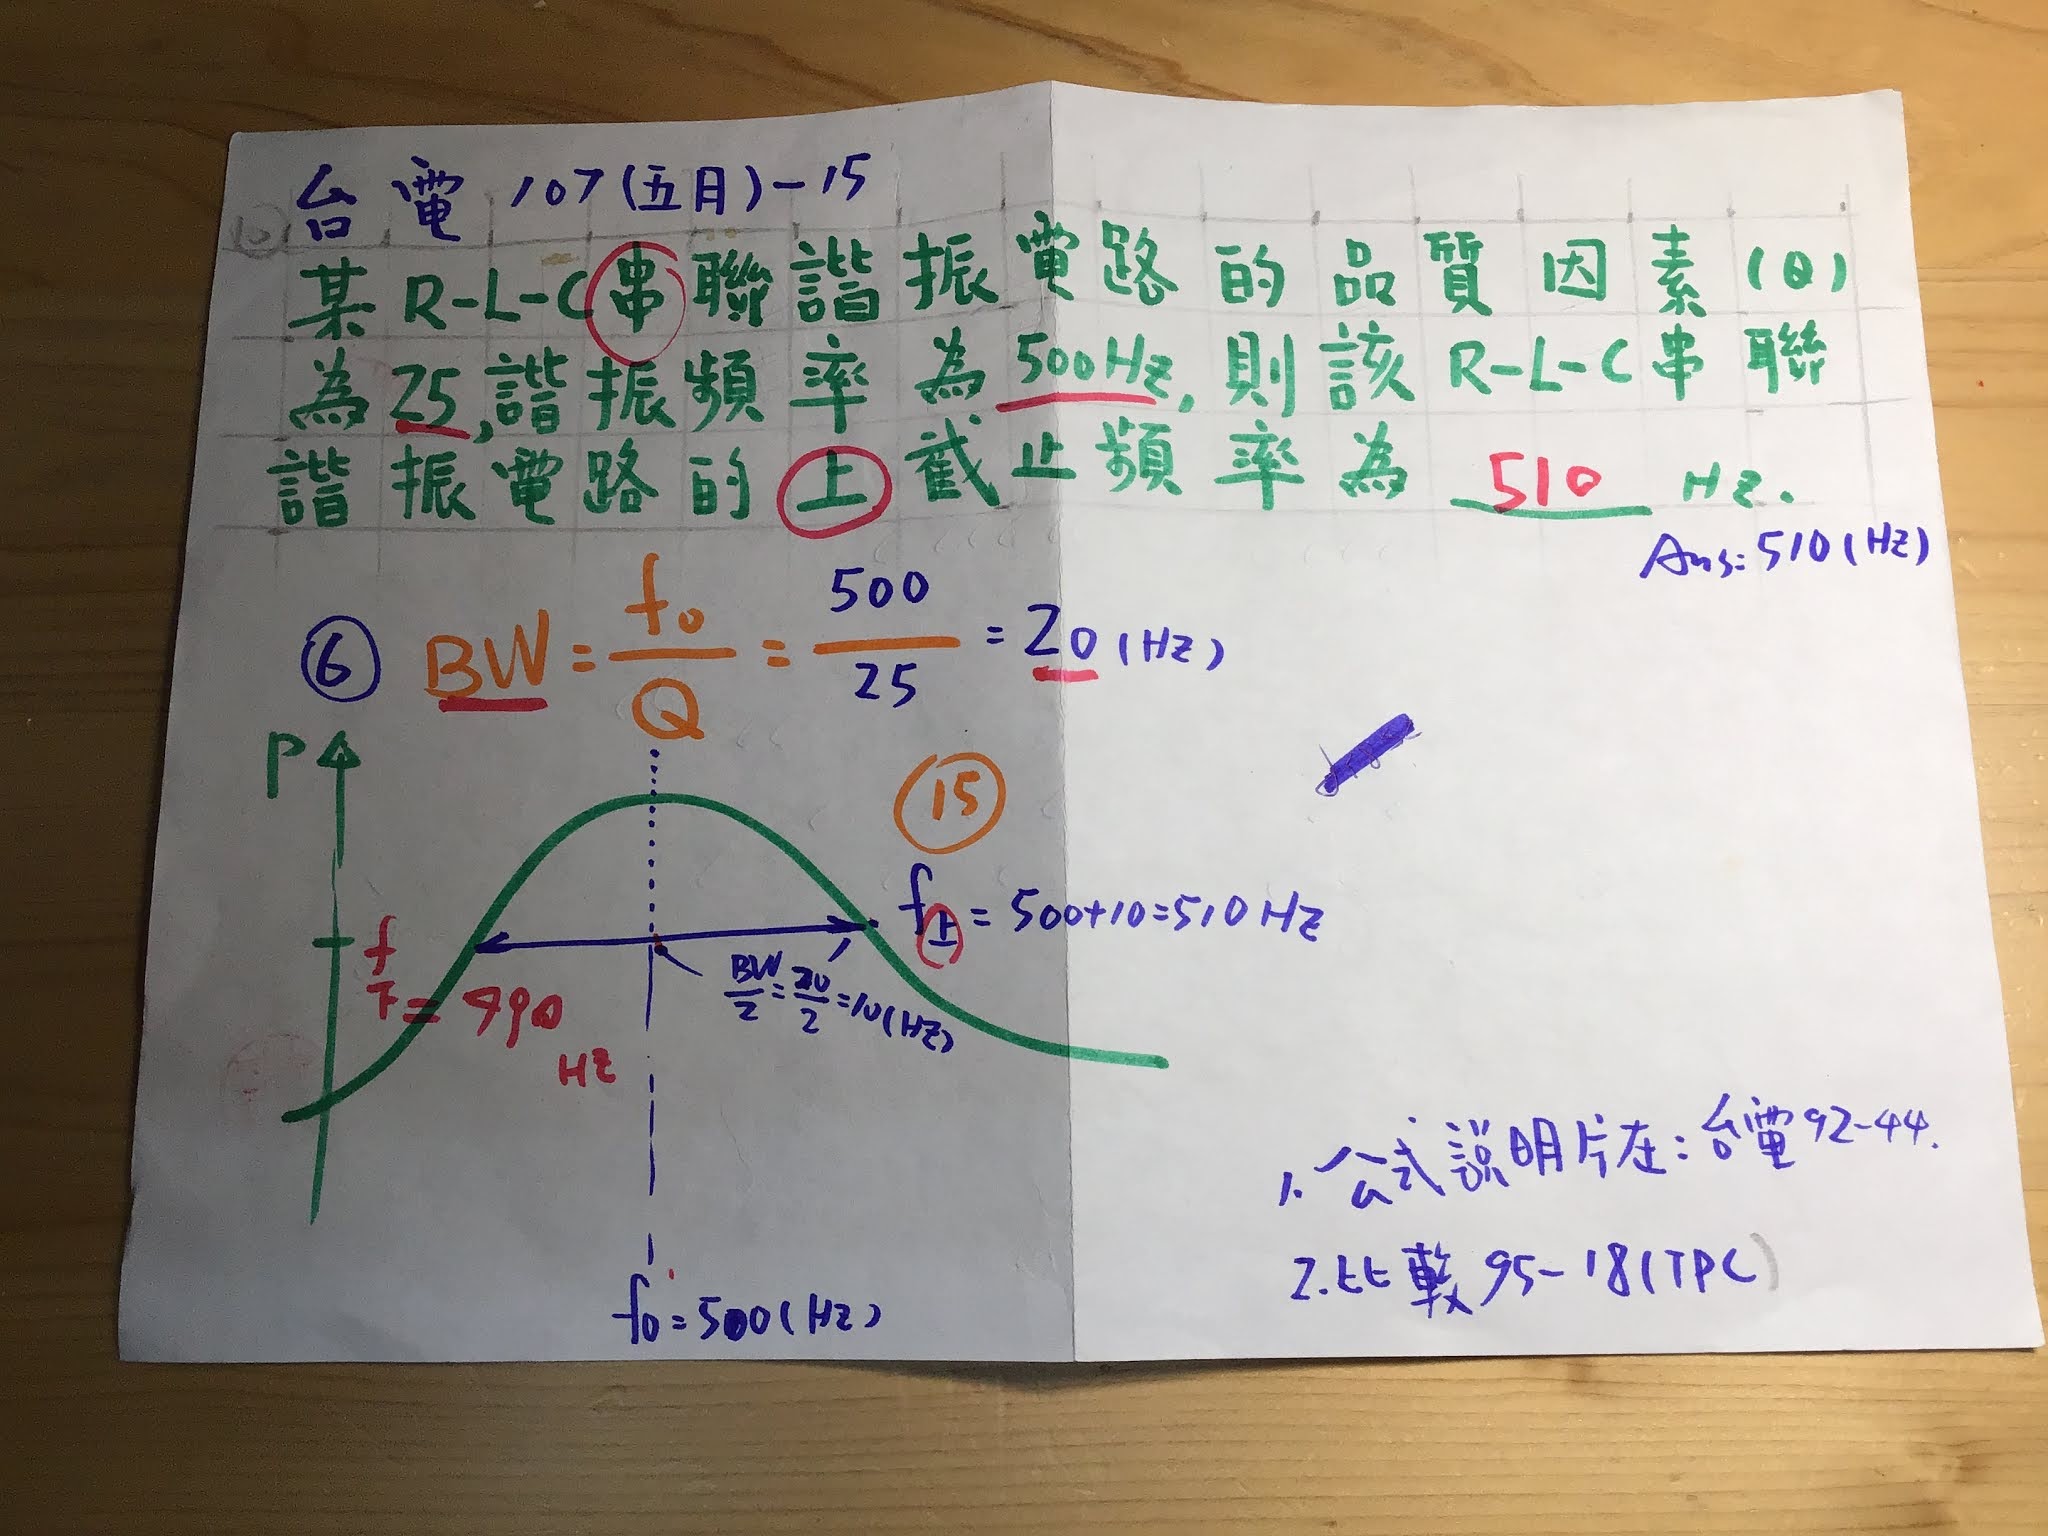 台電 107(五月)-15
某R-L-C串聯諧振電路的品質因素(Q)
為25,諧振頻率為500Hz,則該R-L-C串聯
諧振電路的上截止頻率為 510 Hz.
Ans:510(Hz)
⑥ BW = f₀/Q = 500/25 = 20 (Hz)
P
⑮
f上 = 500+10=510Hz
BW/2=20/2=10(Hz)
f下= 490
Hz
f₀=500(Hz)
1. 公式説明片在:台電92-44.
2.比較95-18(TPC)